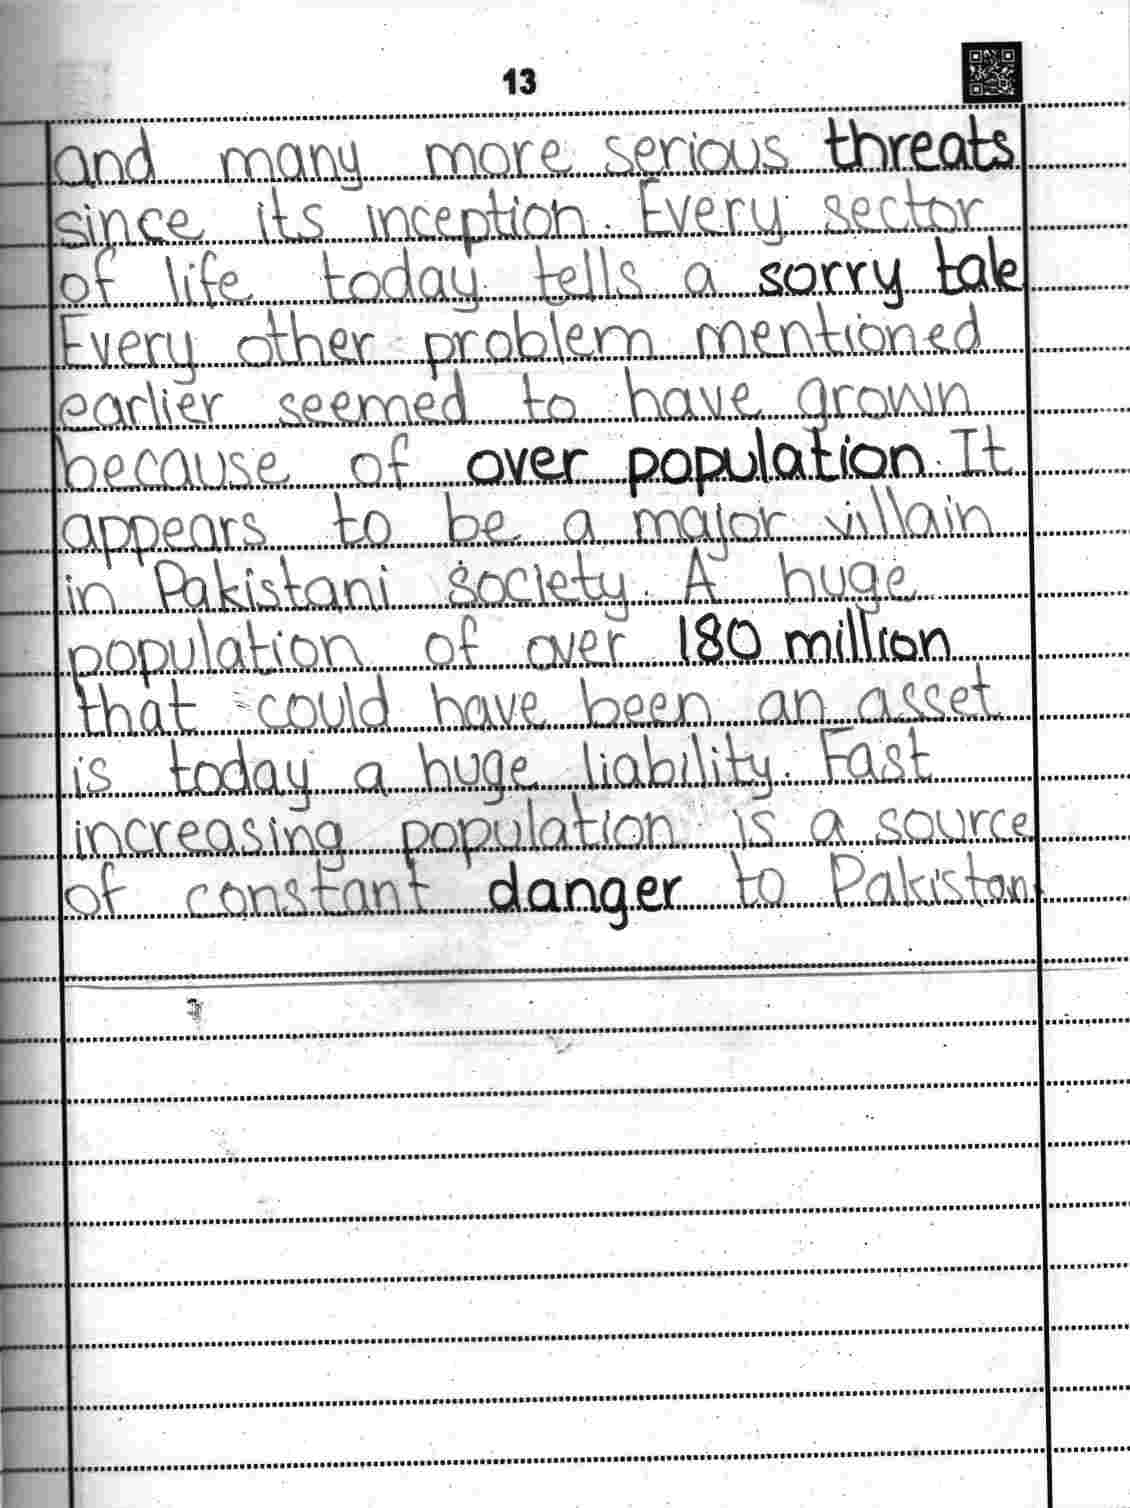 13
and many more serious threats
since its inception. Every sector
of life today tells a sorry tale
Every other problem mentioned
earlier seemed to have grown
because of over population. It
appears to be a major villain
in Pakistani society. A huge
population of over 180 million
that could have been an asset
is today a huge liability. Fast
increasing population is a source
of constant danger to Pakistan